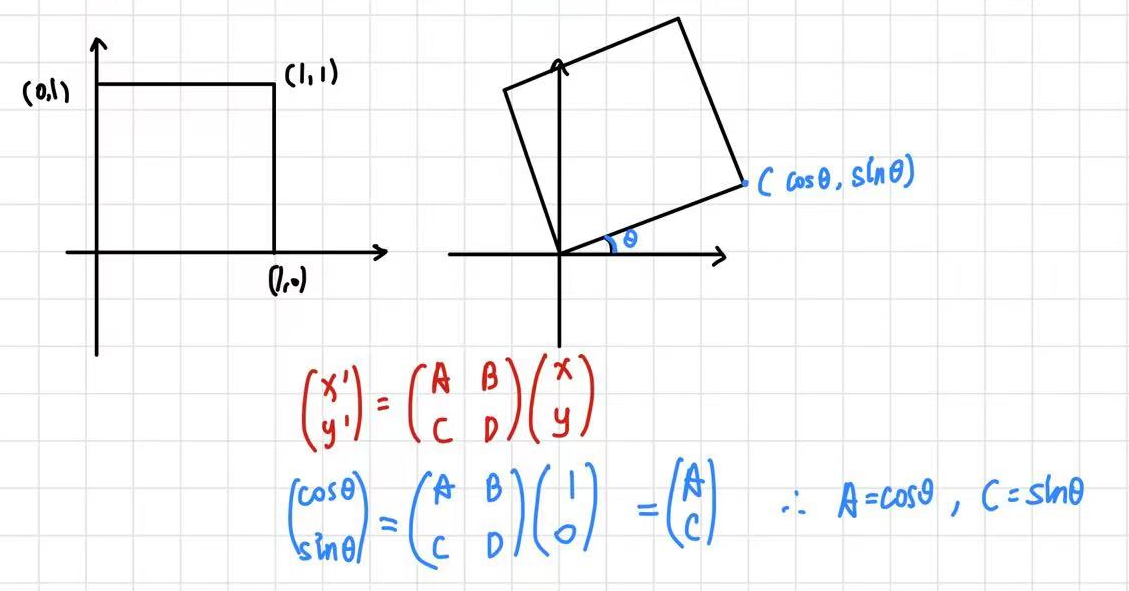 (0,1)
(1,1)
(1,0)
θ
( cosθ, sinθ)
(x' y') = (A B C D)(x y)
(cosθ sinθ) = (A B C D)(1 0) = (A C) ∴ A=cosθ, C=sinθ